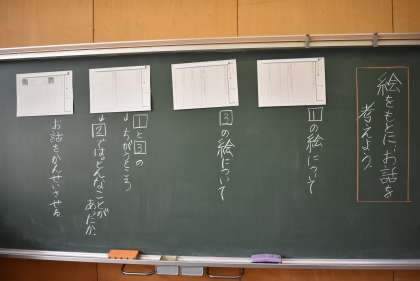 絵をもとに、お話を
考えよう。
1の絵について
3の絵について
1と3の
ちがうところ
2では、どんなことが
あったか。
お話をかんせいさせる